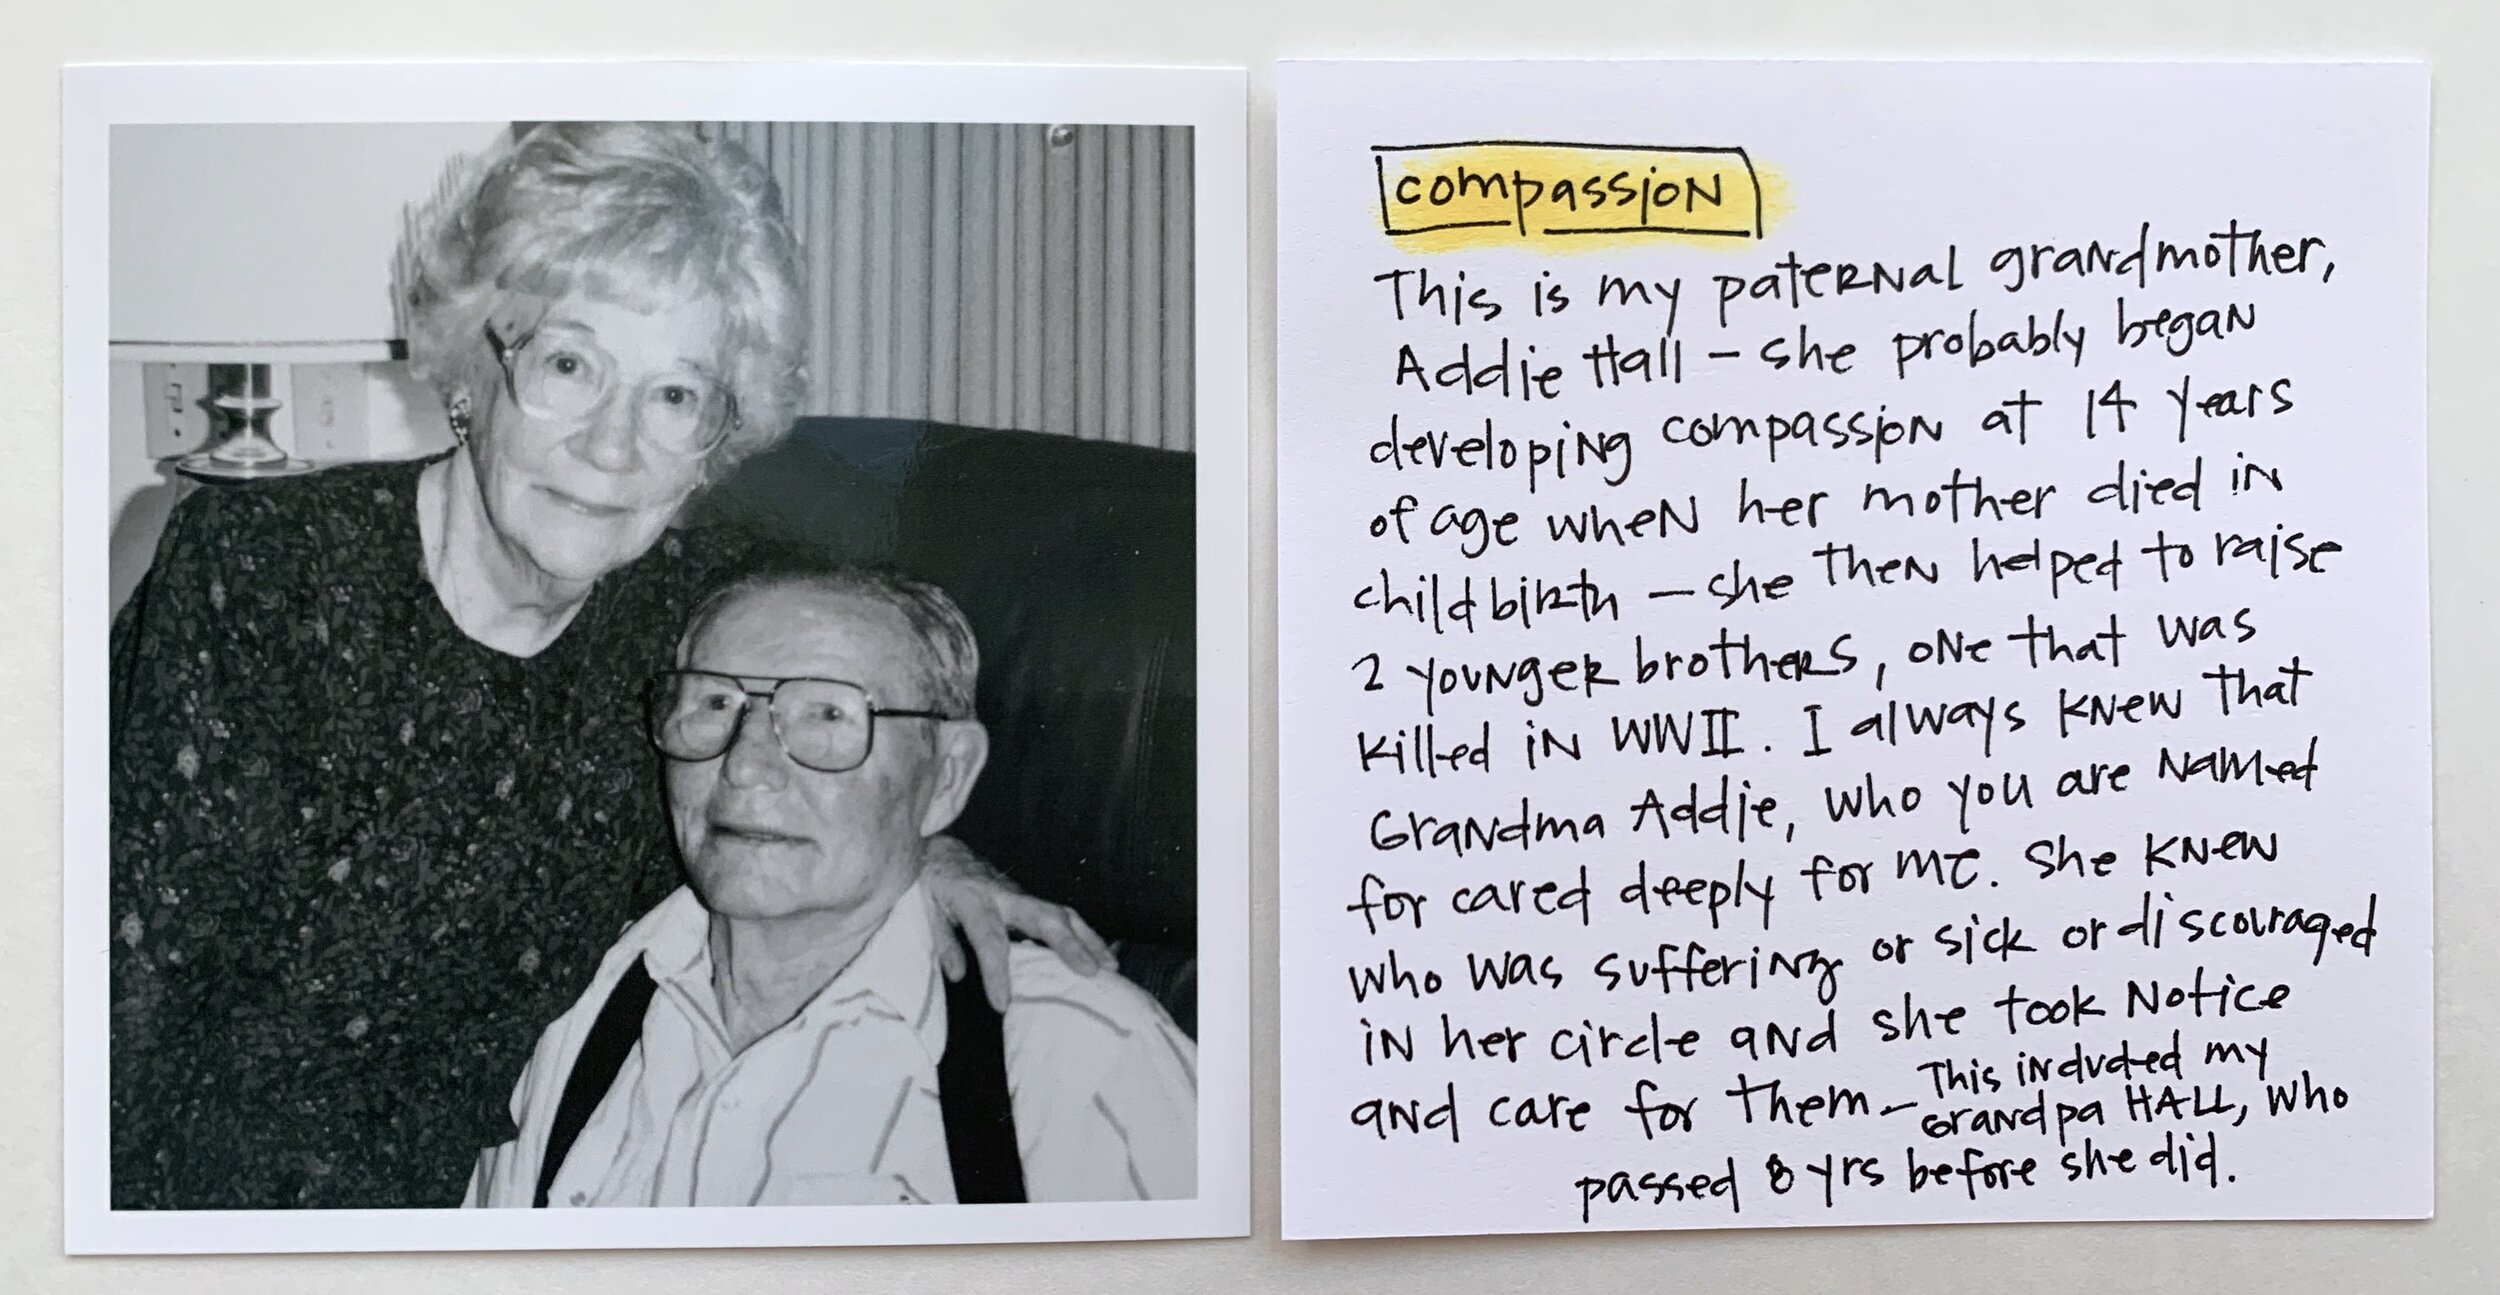 compassion
This is my paternal grandmother,
Addie Hall – she probably began
developing compassion at 14 years
of age when her mother died in
childbirth – she then helped to raise
2 younger brothers, one that was
killed in WWII. I always knew that
Grandma Addie, who you are named
for cared deeply for me. She knew
who was suffering or sick or discouraged
in her circle and she took notice
and care for them – This included my
Grandpa HALL, who
passed 8 yrs before she did.